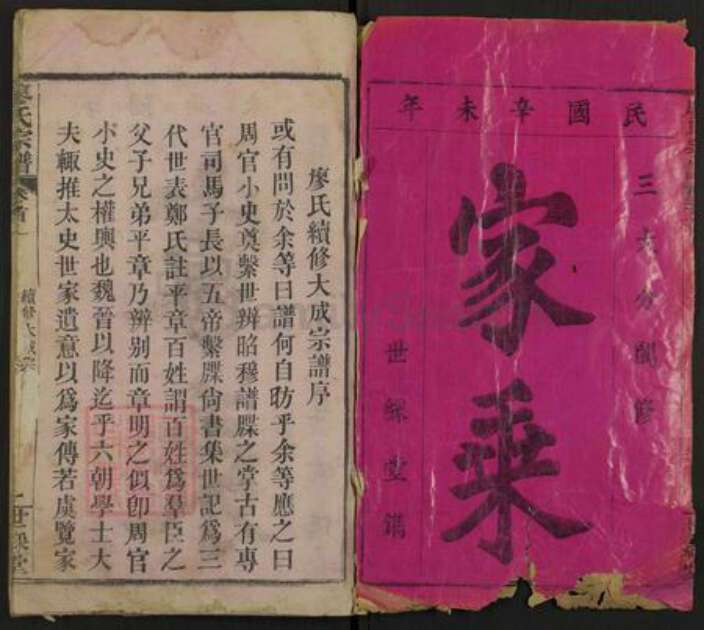 民國辛未年
三大分閤修
家乘
世綵堂鐫
廖氏續修大成宗譜序
或有問於余等曰譜何自昉乎余等應之曰
周官小史奠繫世辨昭穆譜牒之掌古有專
官司馬子長以五帝繫牒尙書集世記爲三
代世表鄭氏註平章百姓謂百姓爲羣臣之
父子兄弟平章乃辨别而章明之似卽周官
小史之權輿也魏晉以降迄乎六朝學士大
夫輒推太史世家遺意以爲家傳若虞覽家
廖氏宗譜
卷首
續修大成宗
世綵堂